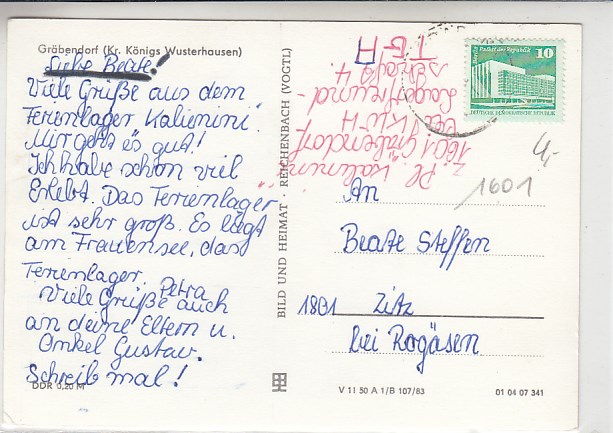 Gräbendorf (Kr. Königs Wusterhausen)
Liebe Beate!
Viele Grüße aus dem
Ferienlager Kalinin!
Mir geht es gut!
Ich habe schon viel
Erlebt. Das Ferienlager
ist sehr groß. Es liegt
am Frauensee, das
Ferienlager. Petra
Viele Grüße auch
an deine Eltern u.
Onkel Gustav.
Schreib mal!
DDR 0,20 M
BILD UND HEIMAT · REICHENBACH (VOGTL)
Z. Pl. Kalinin
1601 Gräbendorf
bei KWH
Lagerfreund-
schaft 4
T 5 H
Berlin Palast der Republik
10
DEUTSCHE DEMOKRATISCHE REPUBLIK
4,-
1601
An
Beate Steffen
1801 Zitz
bei Rogäsen
V 11 50 A 1/B 107/83
01 04 07 341